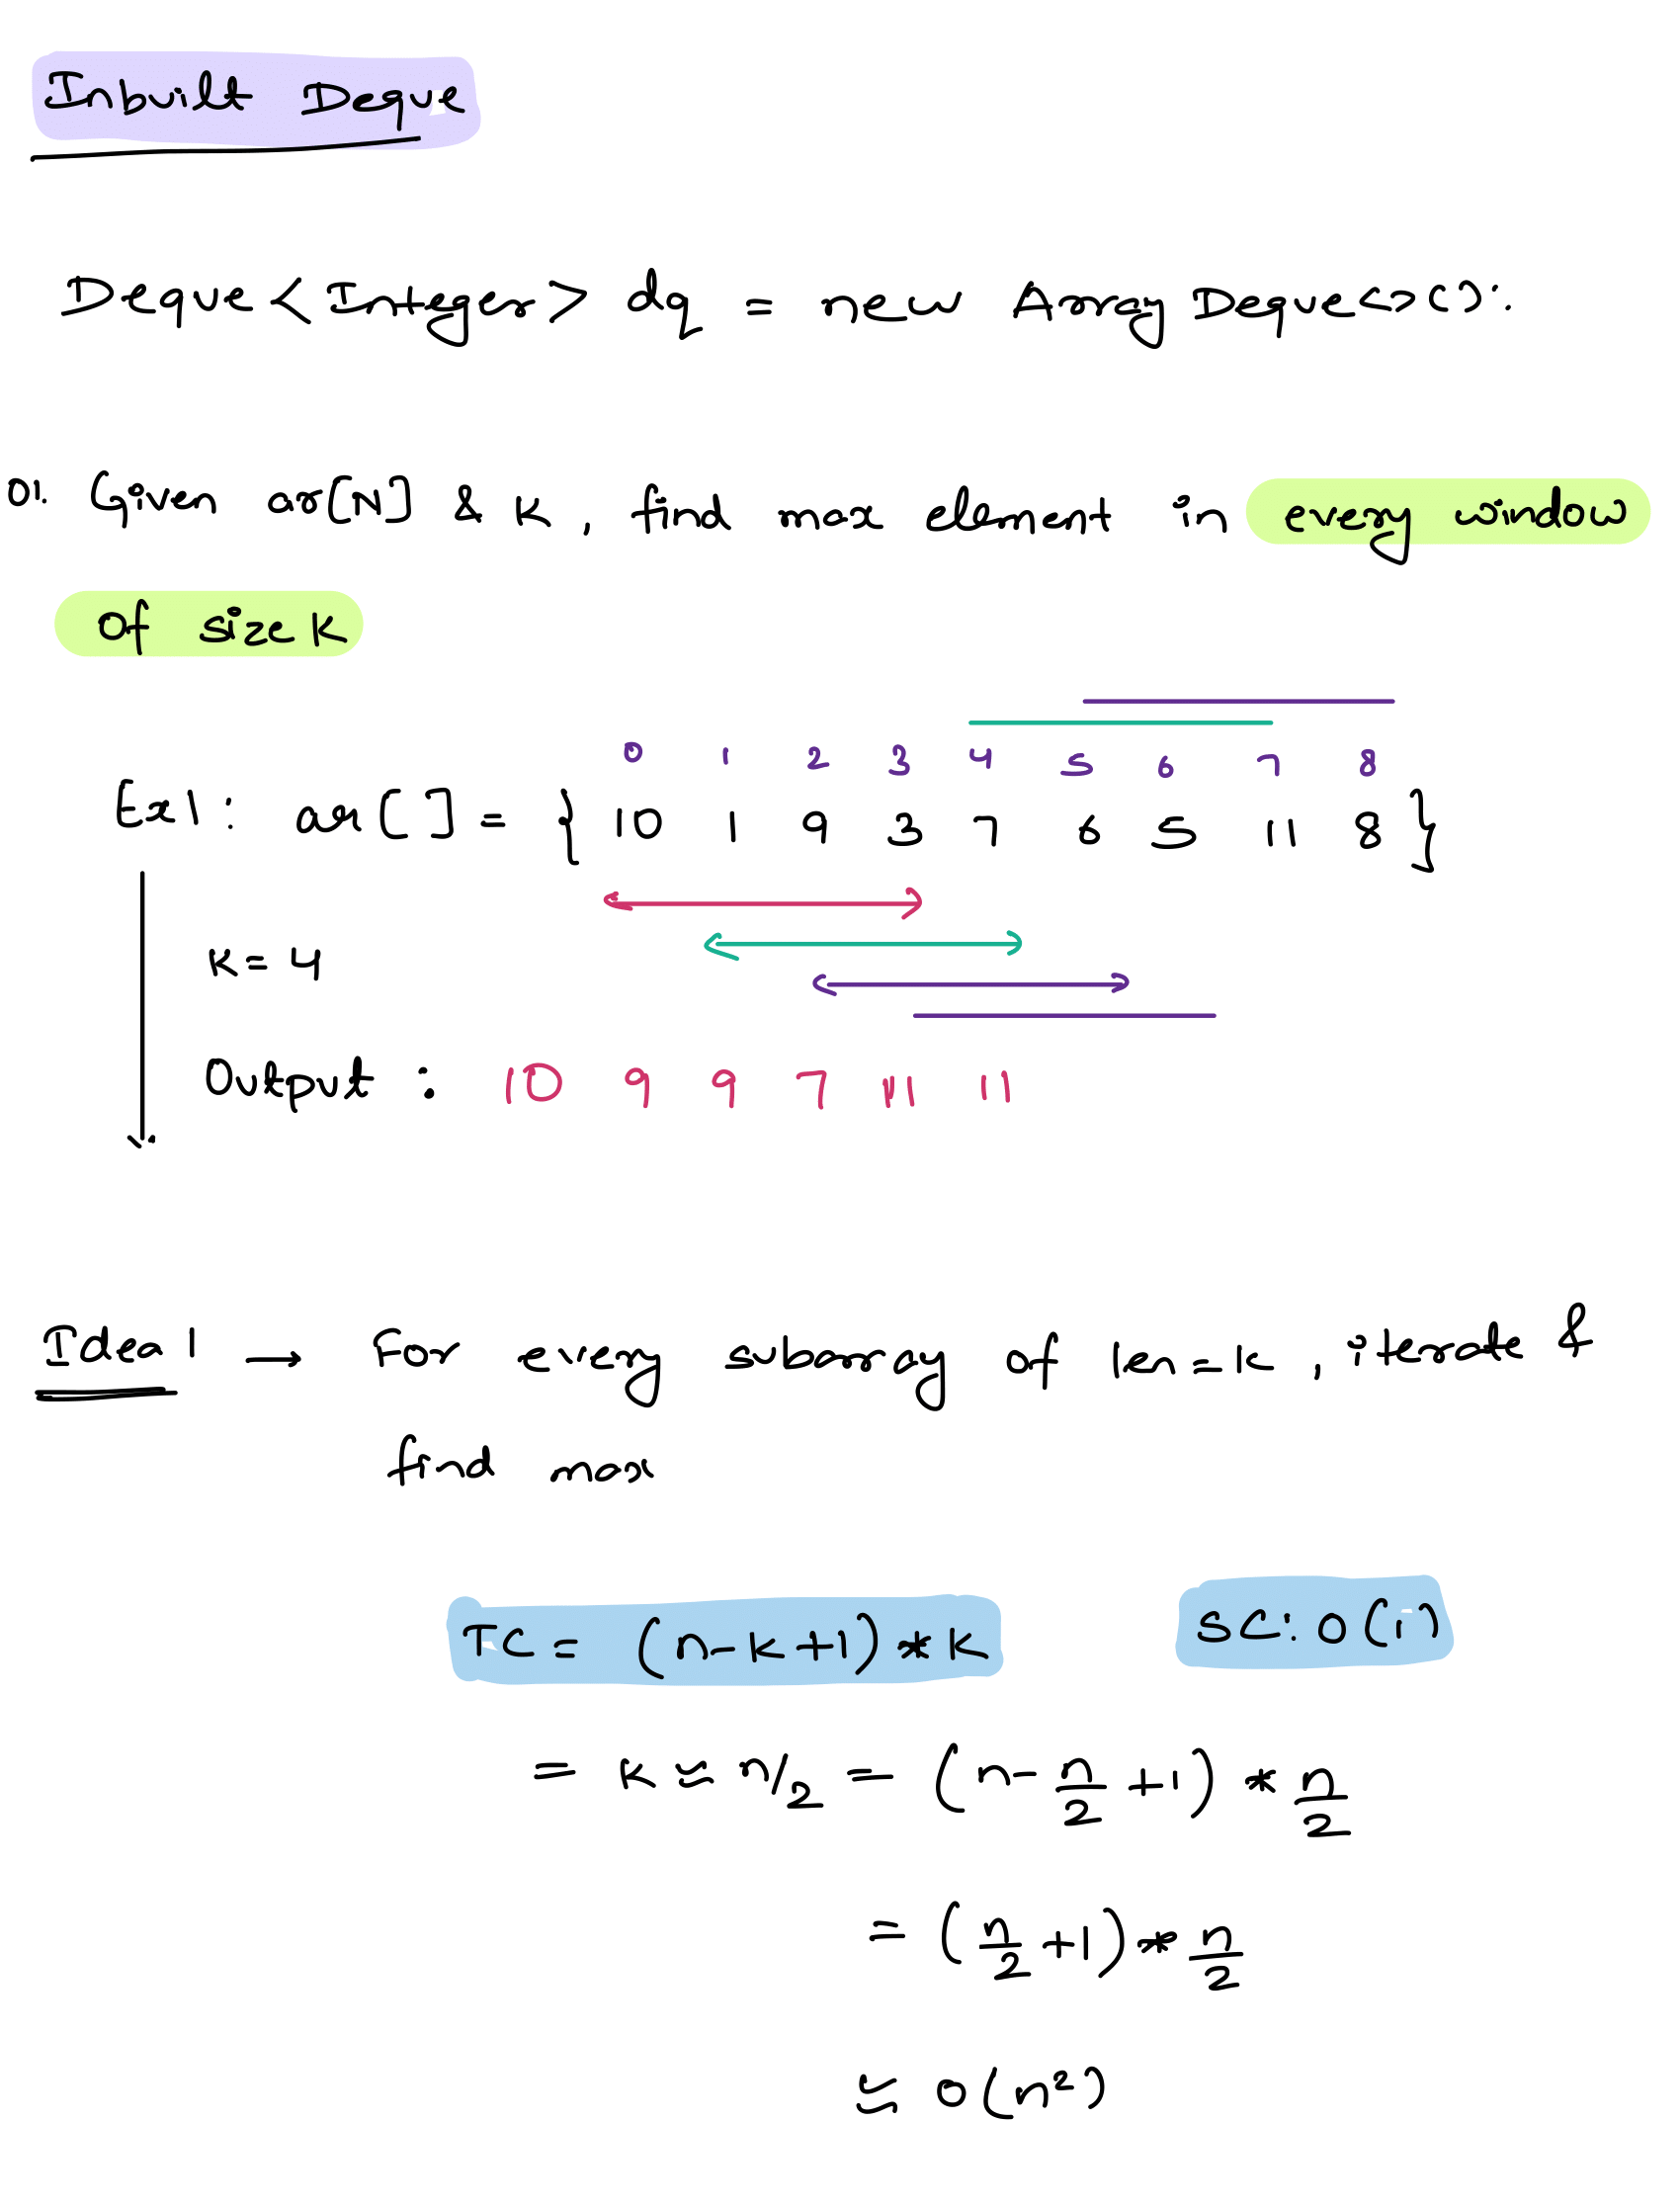 Inbuilt Deque
Deque<Integer> dq = new ArrayDeque<>():
01. Given ar[N] & K, find max element in every window
of size K
0 1 2 3 4 5 6 7 8
Ex1: ar[] = { 10 1 9 3 7 6 5 11 8 }
K = 4
Output : 10 9 9 7 11 11
Idea 1 → For every subarray of len=k, iterate &
find max
TC = (n-k+1) * K SC: O(1)
= K ≈ n/2 = (n - n/2 + 1) * n/2
= (n/2 + 1) * n/2
≈ O(n²)